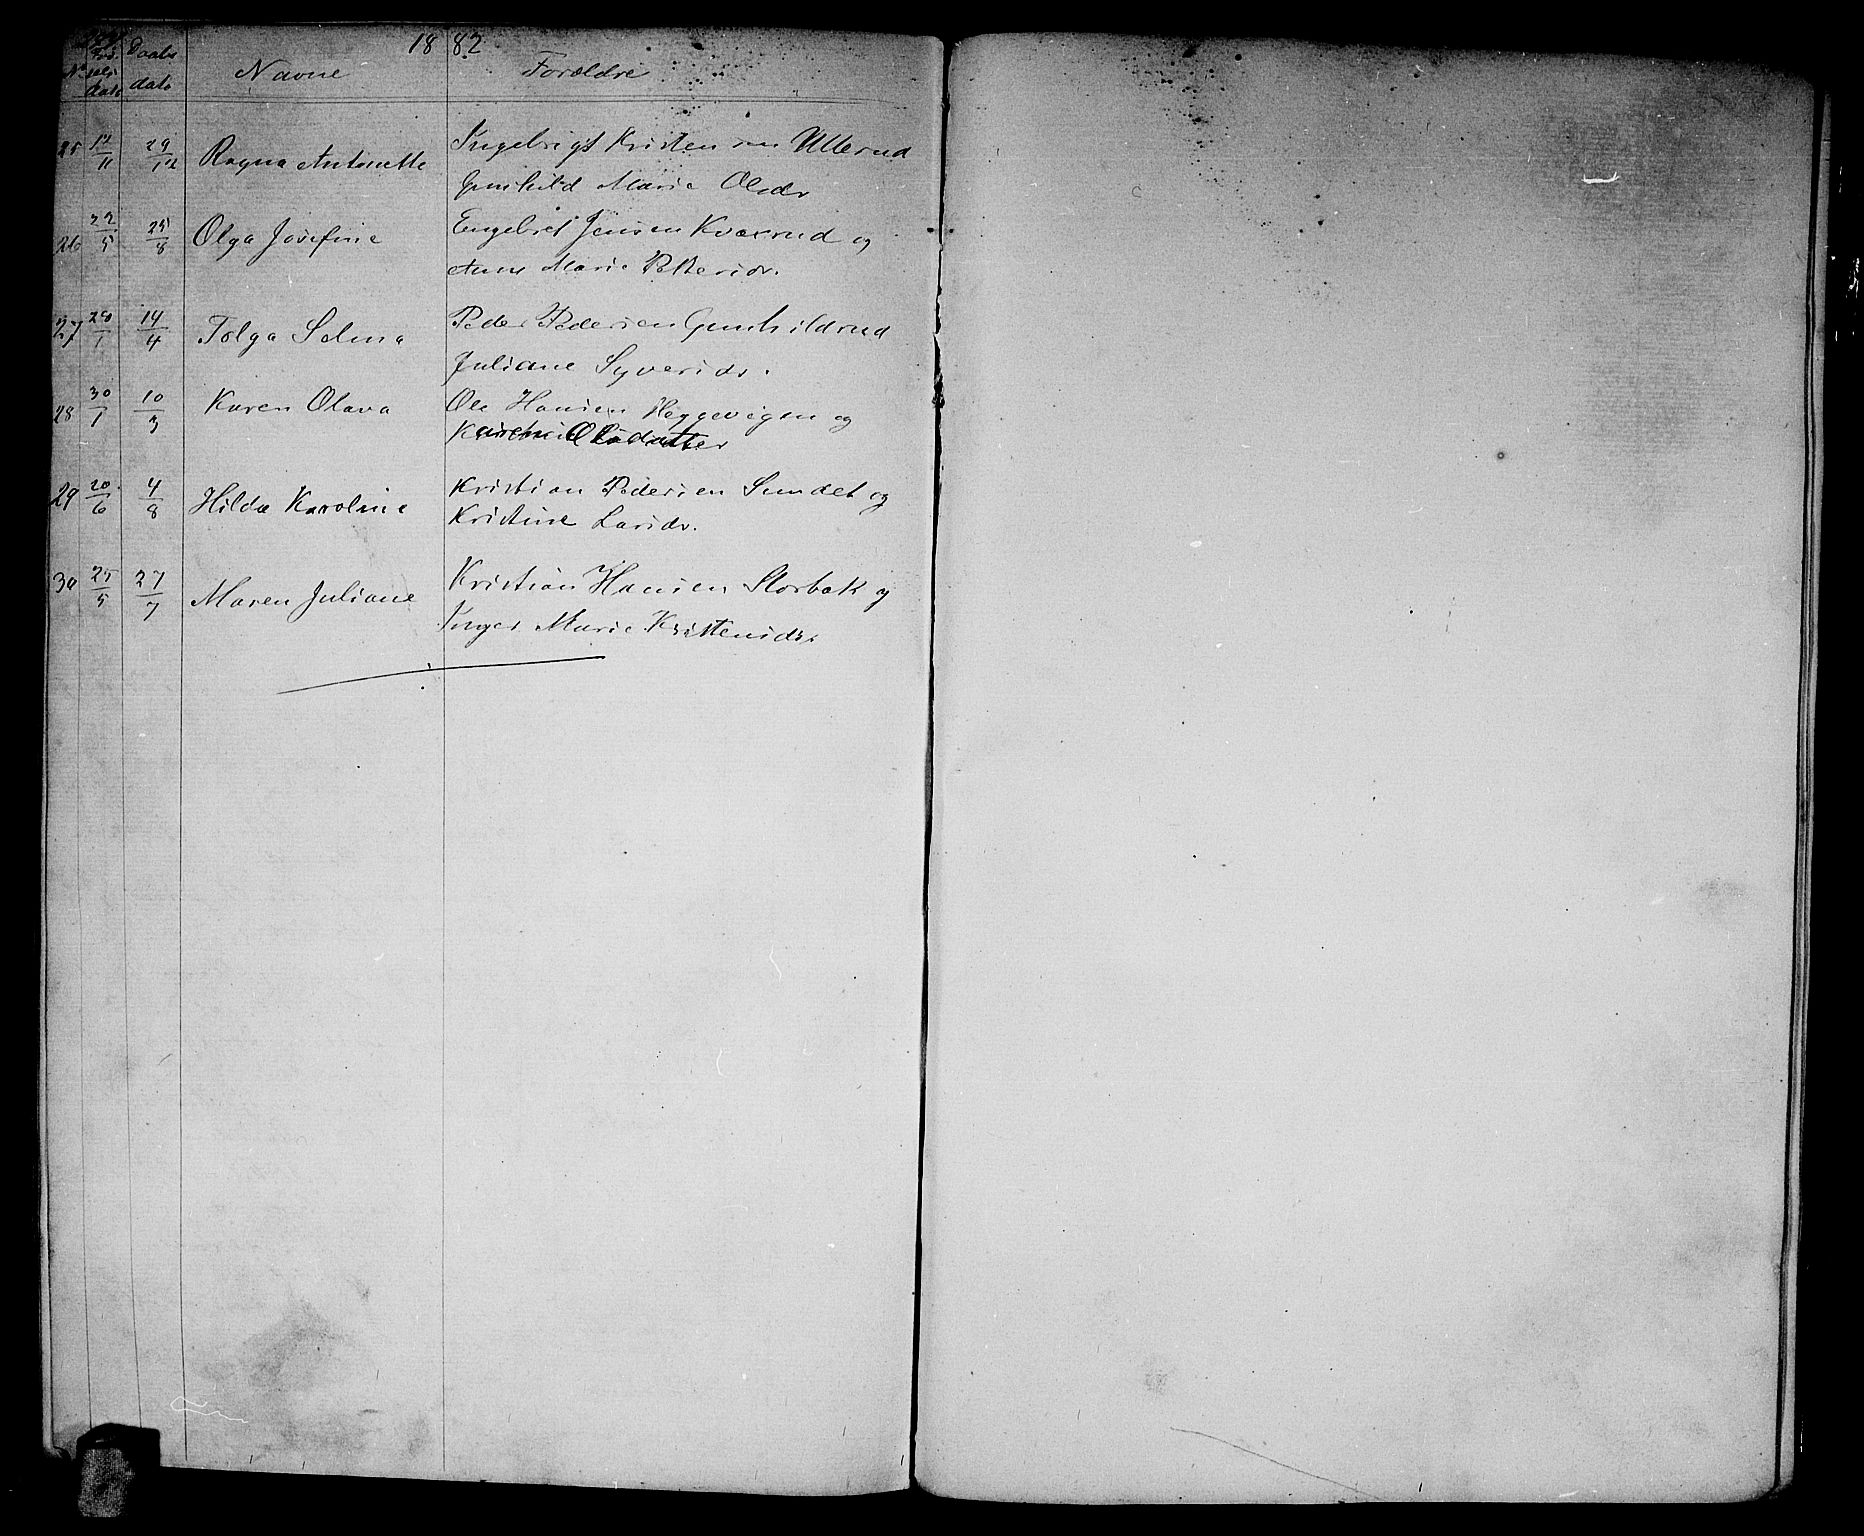 1882
No Fød- sels dato Daabs dato Navne Forældre
25 29/12 Ragna Antonette Ingebrigt Kristensen Ullerud
Gunhild Marie Olsdr
26 22/5 25/8 Olga Josefine Engebret Jensen Kværrud og
Anne Marie Pettersdr.
27 28/1 14/4 Tolga Selma Peder Pedersen Gunhildrud
Juliane Syversdr.
28 30/1 10/3 Karen Olava Ole Hansen Heggevigen og
Karen Olsdatter
29 20/6 4/8 Hilda Karoline Kristian Pedersen Sundet og
Kristine Larsdr.
30 25/5 27/7 Maren Juliane Kristian Hansen Storbæk og
Inger Marie Kristensdr.